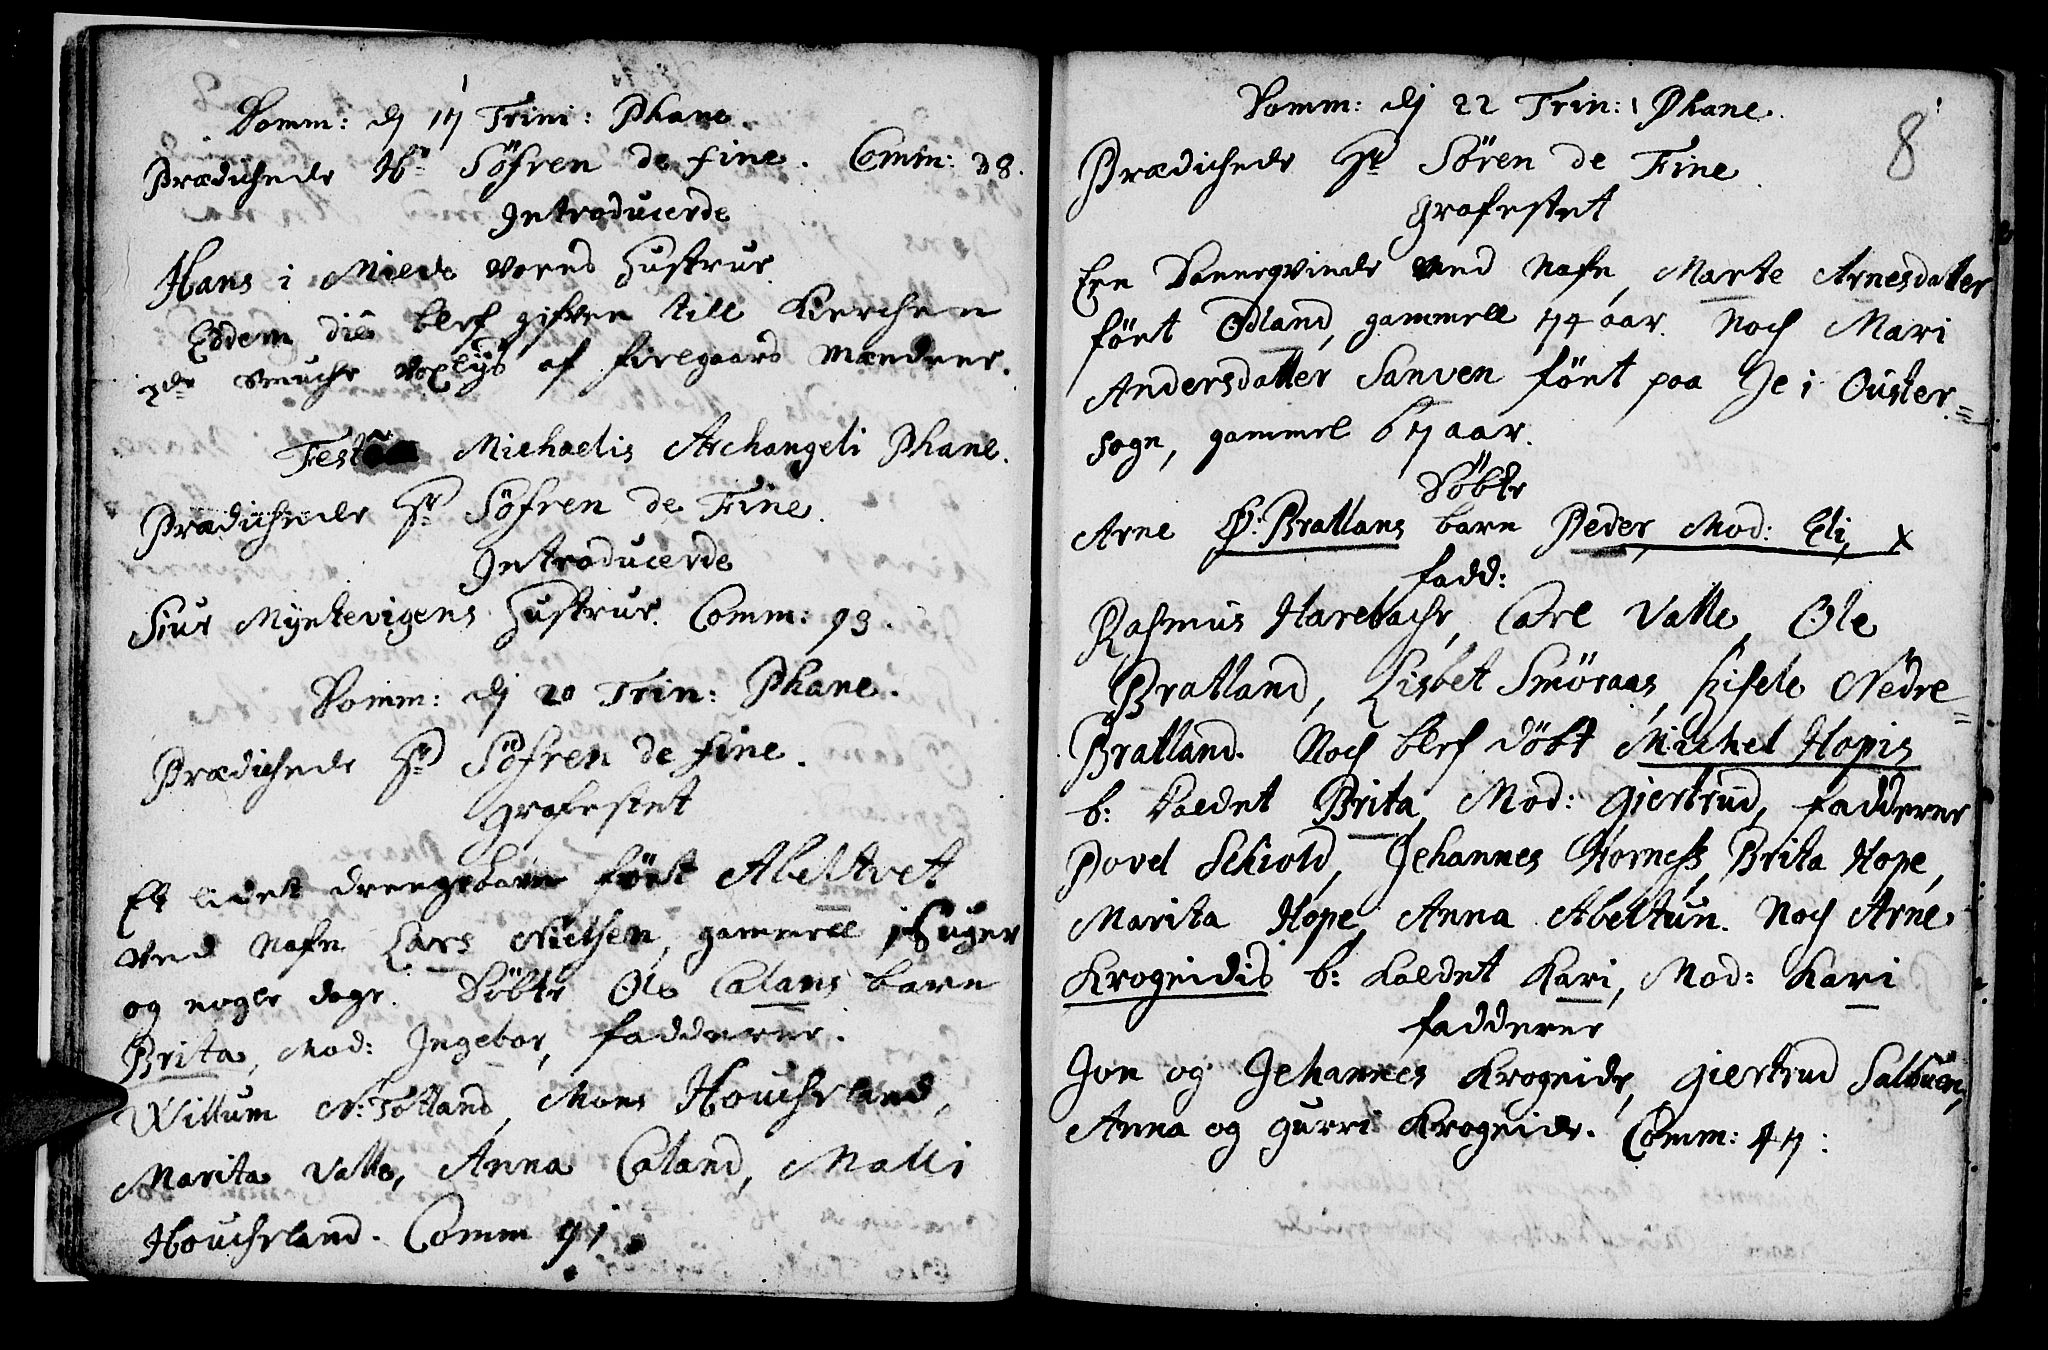 Domm: dj 17 Trini: Phane.
Prædichede Hr Söfren de fine. Comm: 38.
Introducerde
Hans i Milde vores Hustrue
Eodem die blef gifven till Kierchen
2de smuche voxlys af firegaards Mændene.
Fest Michaelis Archangeli Phane.
Prædichede Hr Söfren de Fine.
Introducerde
Siur Myntevigens Hustrue. Comm: 93.
Domm: dj 20 Trin: Phane.
Prædichede Hr Söfren de fine.
Grafestet
Et lidet drengebarn födt Abeltvet
ved Nafn Lars Nielsen, gammell uger
og nogle dage. Döbte Ole Calans barn
Brita, Mod: Ingebor, fadderne.
Willum N: Totland, Mons Houchrland,
Marita Valle, Anna Caland, Malli
Houchrland. Comm 91.
Domm: dj 22 Trin: Phane.
8
Prædichede Hr Sören de Fine.
Grafestet
Een Danneqvinde ved Nafn Marte Arnesdatter
födt Ödland, gammell 74 aar. Noch Mari
Andersdatter Sanven födt paa Je i Ouster=
sogn, gammel 67 aar.
Döbte
Arne Ö: Bratlans barn Peder, Mod: Eli, x
fadd:
Rasmus Harebachr, Carl Valle, Ole
Bratland, Lisbet Smöraas, Zisele Nedre=
Bratland. Noch blef döbt Michel Hopis
b: kaldet Brita, Mod: Giertrud, fadderne
Povel Schiold, Jehannes Horness, Brita Hope,
Marita Hope, Anna Abeltun. Noch Arne
Krogeidis b: kaldet Kari, Mod: Kari
fadderne
Jon og Jehannes Krogeide, Giertrud Salbuen,
Anna og Gurri Krogeide. Comm: 47: